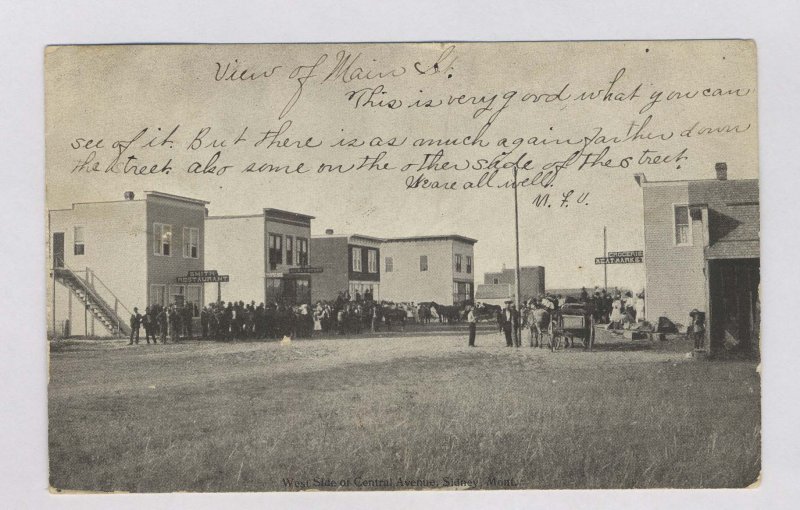 View of Main St.
This is very good what you can
see of it. But there is as much again farther down
the street. also some on the other side of the street.
We are all well.
M. F. U.
SMITH
RESTAURANT
GROCERIES
MEAT MARKET
West Side of Central Avenue, Sidney, Mont.